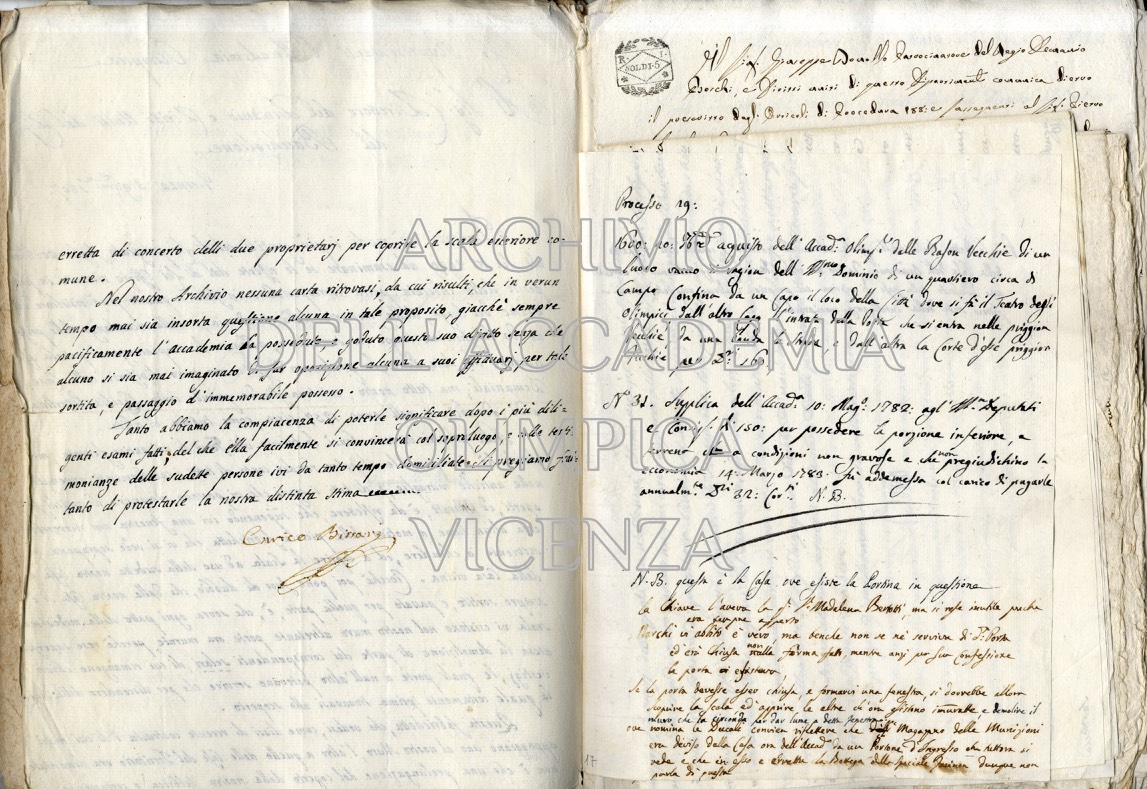 erretta di concerto delli due proprietarj per coprire la scala esteriore co-
mune.
Nel nostro Archivio nessuna carta ritrovasi, da cui risulti, che in verun
tempo mai sia insorta questione alcuna in tale proposito, giacchè sempre
pacificamente l'Accademia ha posseduto e goduto questo suo diritto senza che
alcuno si sia mai imaginato di far opposizione alcuna a suoi per tale
sortita, e passaggio d'immemorabile possesso.
Tanto abbiamo la compiacenza di poterle significare dopo i più dili-
genti esami fatti, del che ella facilmente si convincerà col sopraluogo, e colle testi-
monianze delle sudette persone ivi da tanto tempo domiciliate e ci pregiamo frat-
tanto di protestarle la nostra distinta stima
Enrico Bissari
R. I.
SOLDI.5
Il Sig. Giuseppe del Regio Demanio
Boschi, e Diritti uniti di questo Dipartimento
il prescritto dagli Articoli di Procedura
Processo 29:
1600: 20: aquisto dell'Accad. Olimp. delle Rason Vecchie di un
luoco vacuo di ragion dell' Dominio di un quartiero circa di
Campo Confina da un Capo il loco della Città dove si fà il Teatro degli
Olimpici dall'altro Capo l'intrata della che si entra nelle priggion
Vecchie da una banda la strada e dall'altra la Corte d'esse priggion
Vecchie per
N° 31. Supplica dell'Accad. 10: Mag. 1782: agl' Deputati
e 150: per possedere la porzione inferiore, a
terreno a condizioni non gravose e che non pregiudichino la
economia 14: Marzo 1783. Fù addemessa col carico di pagarle
annualm.te 32: N.B.
N.B. questa è la Casa ove esiste la Portina in questione
la Chiave l'aveva la Madalena Bertotti, ma si rese inutile perchè
era sempre aperto
Perchè in abbito è vero, ma benche non se nè serviva di Porta
ed era chiusa non nella forma fatti, mentre anzi per sua confessione
la porta vi esisteva
Se la porta devesse esser chiusa, e formarvi una fenestra, si dovrebbe allora
scoprire la scala ed apprire le altre di ora esistono imuratte e demolire il
muro, che la circonda per dar lume a detta
ove nomina le Ducali convien riflettere che Magazeno delle Munizioni
era diviso dalla Casa ora dell'Accad. da un Portone d'Ingresso che tuttora si
vede e che in esso è erretta la Bottega dello Speciale dunque non
parla di questa
17
ARCHIVIO
DELL'ACCADEMIA
OLIMPICA
VICENZA